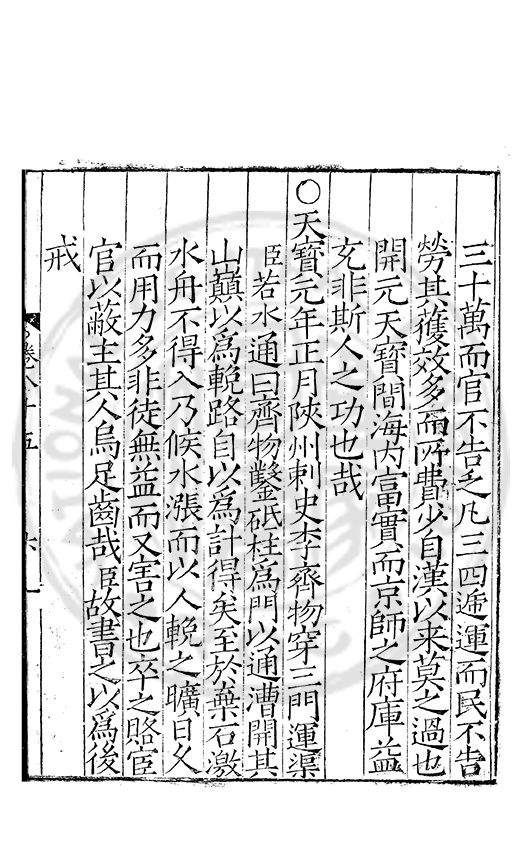 三十萬而官不告乏凡三四逓運而民不告
勞其獲效多而所費少自漢以来莫之過也
開元天寳間海内富實而京師之府庫益
充非斯人之功也哉
○天寳元年正月陜州刺史李齊物穿三門運渠
臣若水通曰齊物鑿砥柱為門以通漕開其
山巔以為輓路自以為計得矣至於棄石激
水舟不得入乃候水漲而以人輓之曠日乆
而用力多非徒無益而又害之也卒之賂宦
官以蔽主其人烏足齒哉臣故書之以為後
戒
卷八十五